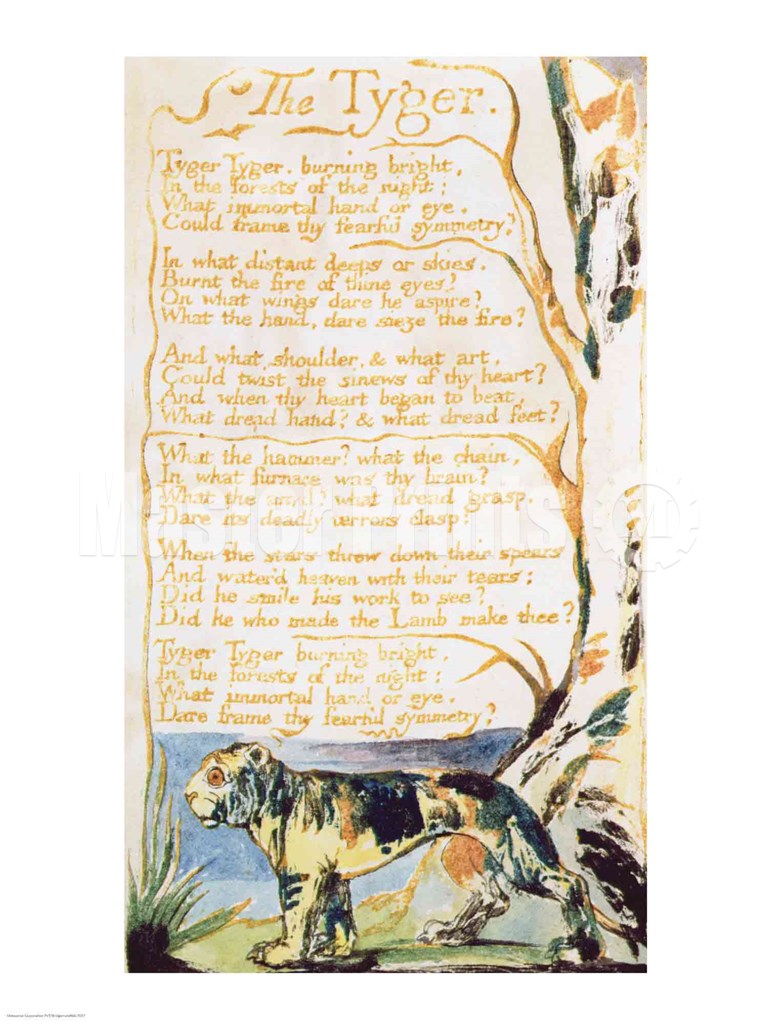 The Tyger.
Tyger Tyger. burning bright,
In the forests of the night;
What immortal hand or eye.
Could frame thy fearful symmetry?
In what distant deeps or skies.
Burnt the fire of thine eyes?
On what wings dare he aspire?
What the hand, dare sieze the fire?
And what shoulder, & what art,
Could twist the sinews of thy heart?
And when thy heart began to beat,
What dread hand? & what dread feet?
What the hammer? what the chain,
In what furnace was thy brain?
What the anvil? what dread grasp.
Dare its deadly terrors clasp?
When the stars threw down their spears
And water'd heaven with their tears:
Did he smile his work to see?
Did he who made the Lamb make thee?
Tyger Tyger burning bright,
In the forests of the night:
What immortal hand or eye.
Dare frame thy fearful symmetry?
Master Prints